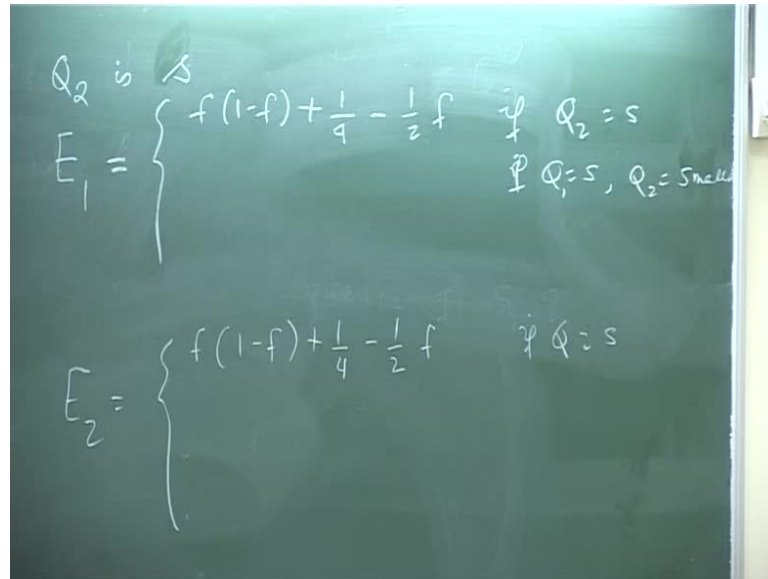 Q₂ is s
E₁ = { f(1-f) + 1/4 - 1/2 f if Q₂ = s
if Q₁ = s, Q₂ = small
E₂ = { f(1-f) + 1/4 - 1/2 f if Q = s